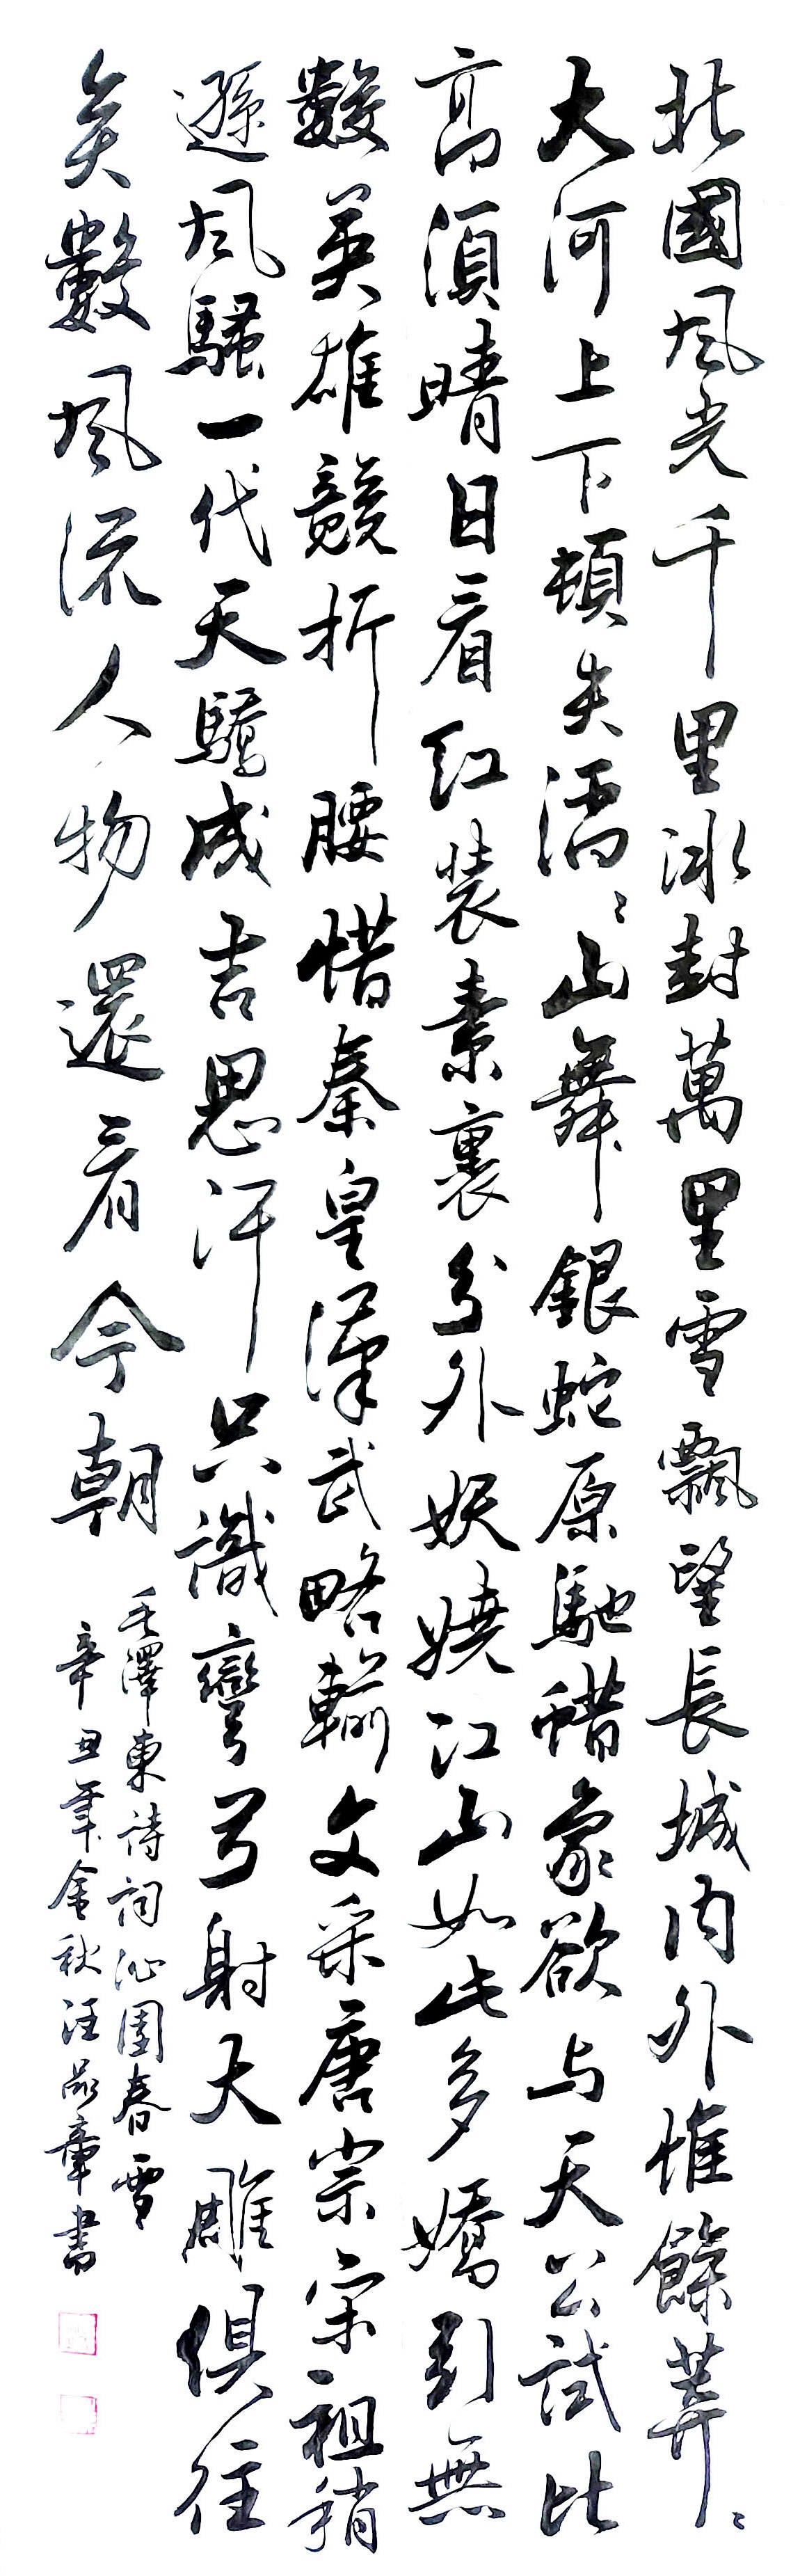 北國風光千里冰封萬里雪飄望長城內外惟餘莽〻
大河上下頓失滔〻山舞銀蛇原馳蜡象欲与天公試比
高須晴日看紅裝素裹分外妖嬈江山如此多嬌引無
數英雄競折腰惜秦皇漢武略輸文采唐宗宋祖稍
遜風騷一代天驕成吉思汗只識彎弓射大雕俱往
矣數風流人物還看今朝
毛澤東詩詞沁園春雪
辛丑年金秋汪品章書